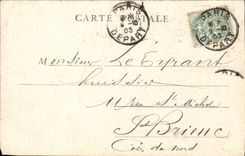 CARTE POSTALE
PARIS
DEPART
PARIS
DEPART
Monsieur Le Tyrant
huissier
11 Rue St Michel
St Brieuc
Côtes du Nord